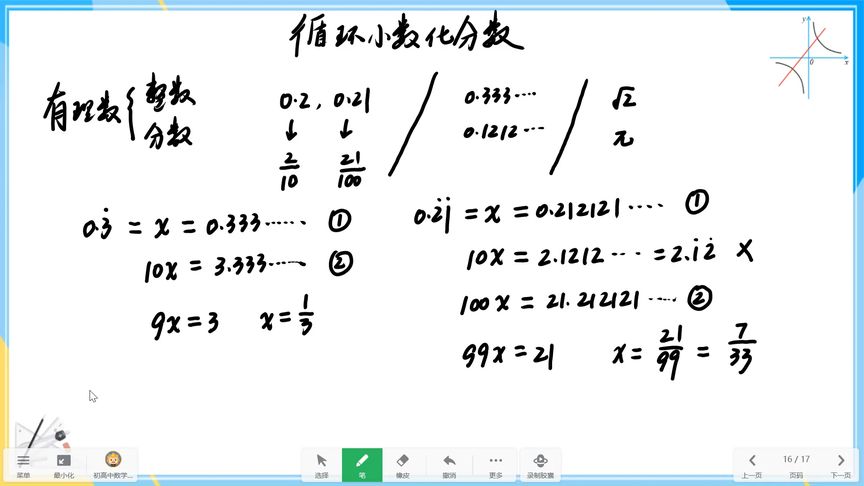 循环小数化分数
y
0
x
有理数{整数 分数
0.2, 0.21
↓ ↓
2/10 21/100
0.333……
0.1212……
√2
π
0.3̇ = x = 0.333…… ①
10x = 3.333…… ②
9x = 3 x = 1/3
0.2̇1̇ = x = 0.212121…… ①
10x = 2.1212…… = 2.1̇2̇ ×
100x = 21.212121…… ②
99x = 21 x = 21/99 = 7/33
菜单 最小化 初高中数学... 选择 笔 橡皮 撤消 更多 录制胶囊 上一页 16 / 17 页码 下一页